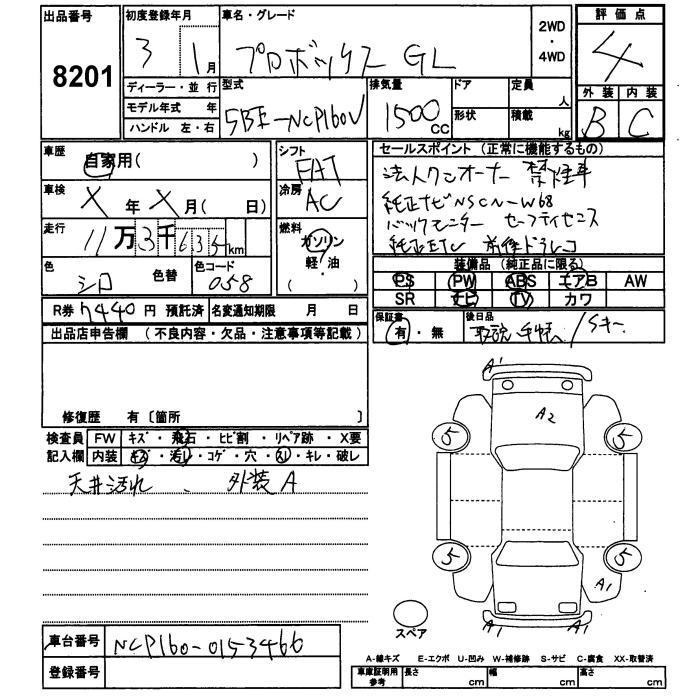 出品番号
8201
初度登録年月
3 1月
車名・グレード
プロボックス GL
2WD
・
4WD
評価点
4
外装 内装
B C
ディーラー・並行
モデル年式 年
ハンドル 左・右
型式
5BE-NCP160V
排気量
1500cc
ドア
形状
定員
人
積載
kg
車歴
自家用( )
シフト
FAT
車検
X 年 X 月( 日)
冷房
AC
走行
11万3千635km
燃料
ガソリン
軽・油
( )
色
シロ
色替
色コード
058
R券 7440 円 預託済
名変通知期限 月 日
セールスポイント (正常に機能するもの)
法人ワンオーナー 禁煙車
純正ナビNSCN-W68
バックモニター セーフティセンス
純正ETC 前後ドラレコ
装備品 (純正品に限る)
PS PW ABS エアB AW
SR ナビ TV カワ
保証書
有・無
後日品
取説 手帳 /Sキー
出品店申告欄 (不良内容・欠品・注意事項等記載)
修復歴 有〔箇所 〕
検査員
記入欄
FW キズ・飛石・ヒビ割・リペア跡・X要
内装 キズ・汚レ・コゲ・穴・スレ・キレ・破レ
天井汚れ、 外装A
A1
A2
5 5
5 5
A1
A1 A1
スペア
車台番号 NCP160-0153466
登録番号
A-線キズ E-エクボ U-凹み W-補修跡 S-サビ C-腐食 XX-取替済
車庫証明用
参考
長さ cm 幅 cm 高さ cm